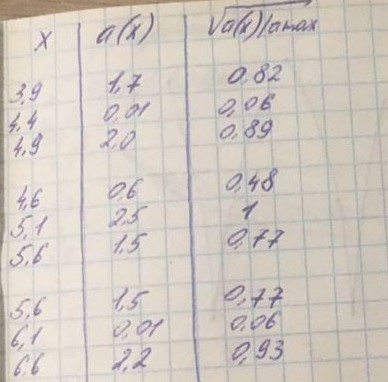 x a(x) √a(x)/amax
3,9 1,7 0,82
4,4 0,01 0,06
4,9 2,0 0,89
4,6 0,6 0,48
5,1 2,5 1
5,6 1,5 0,77
5,6 1,5 0,77
6,1 0,01 0,06
6,6 2,2 0,93